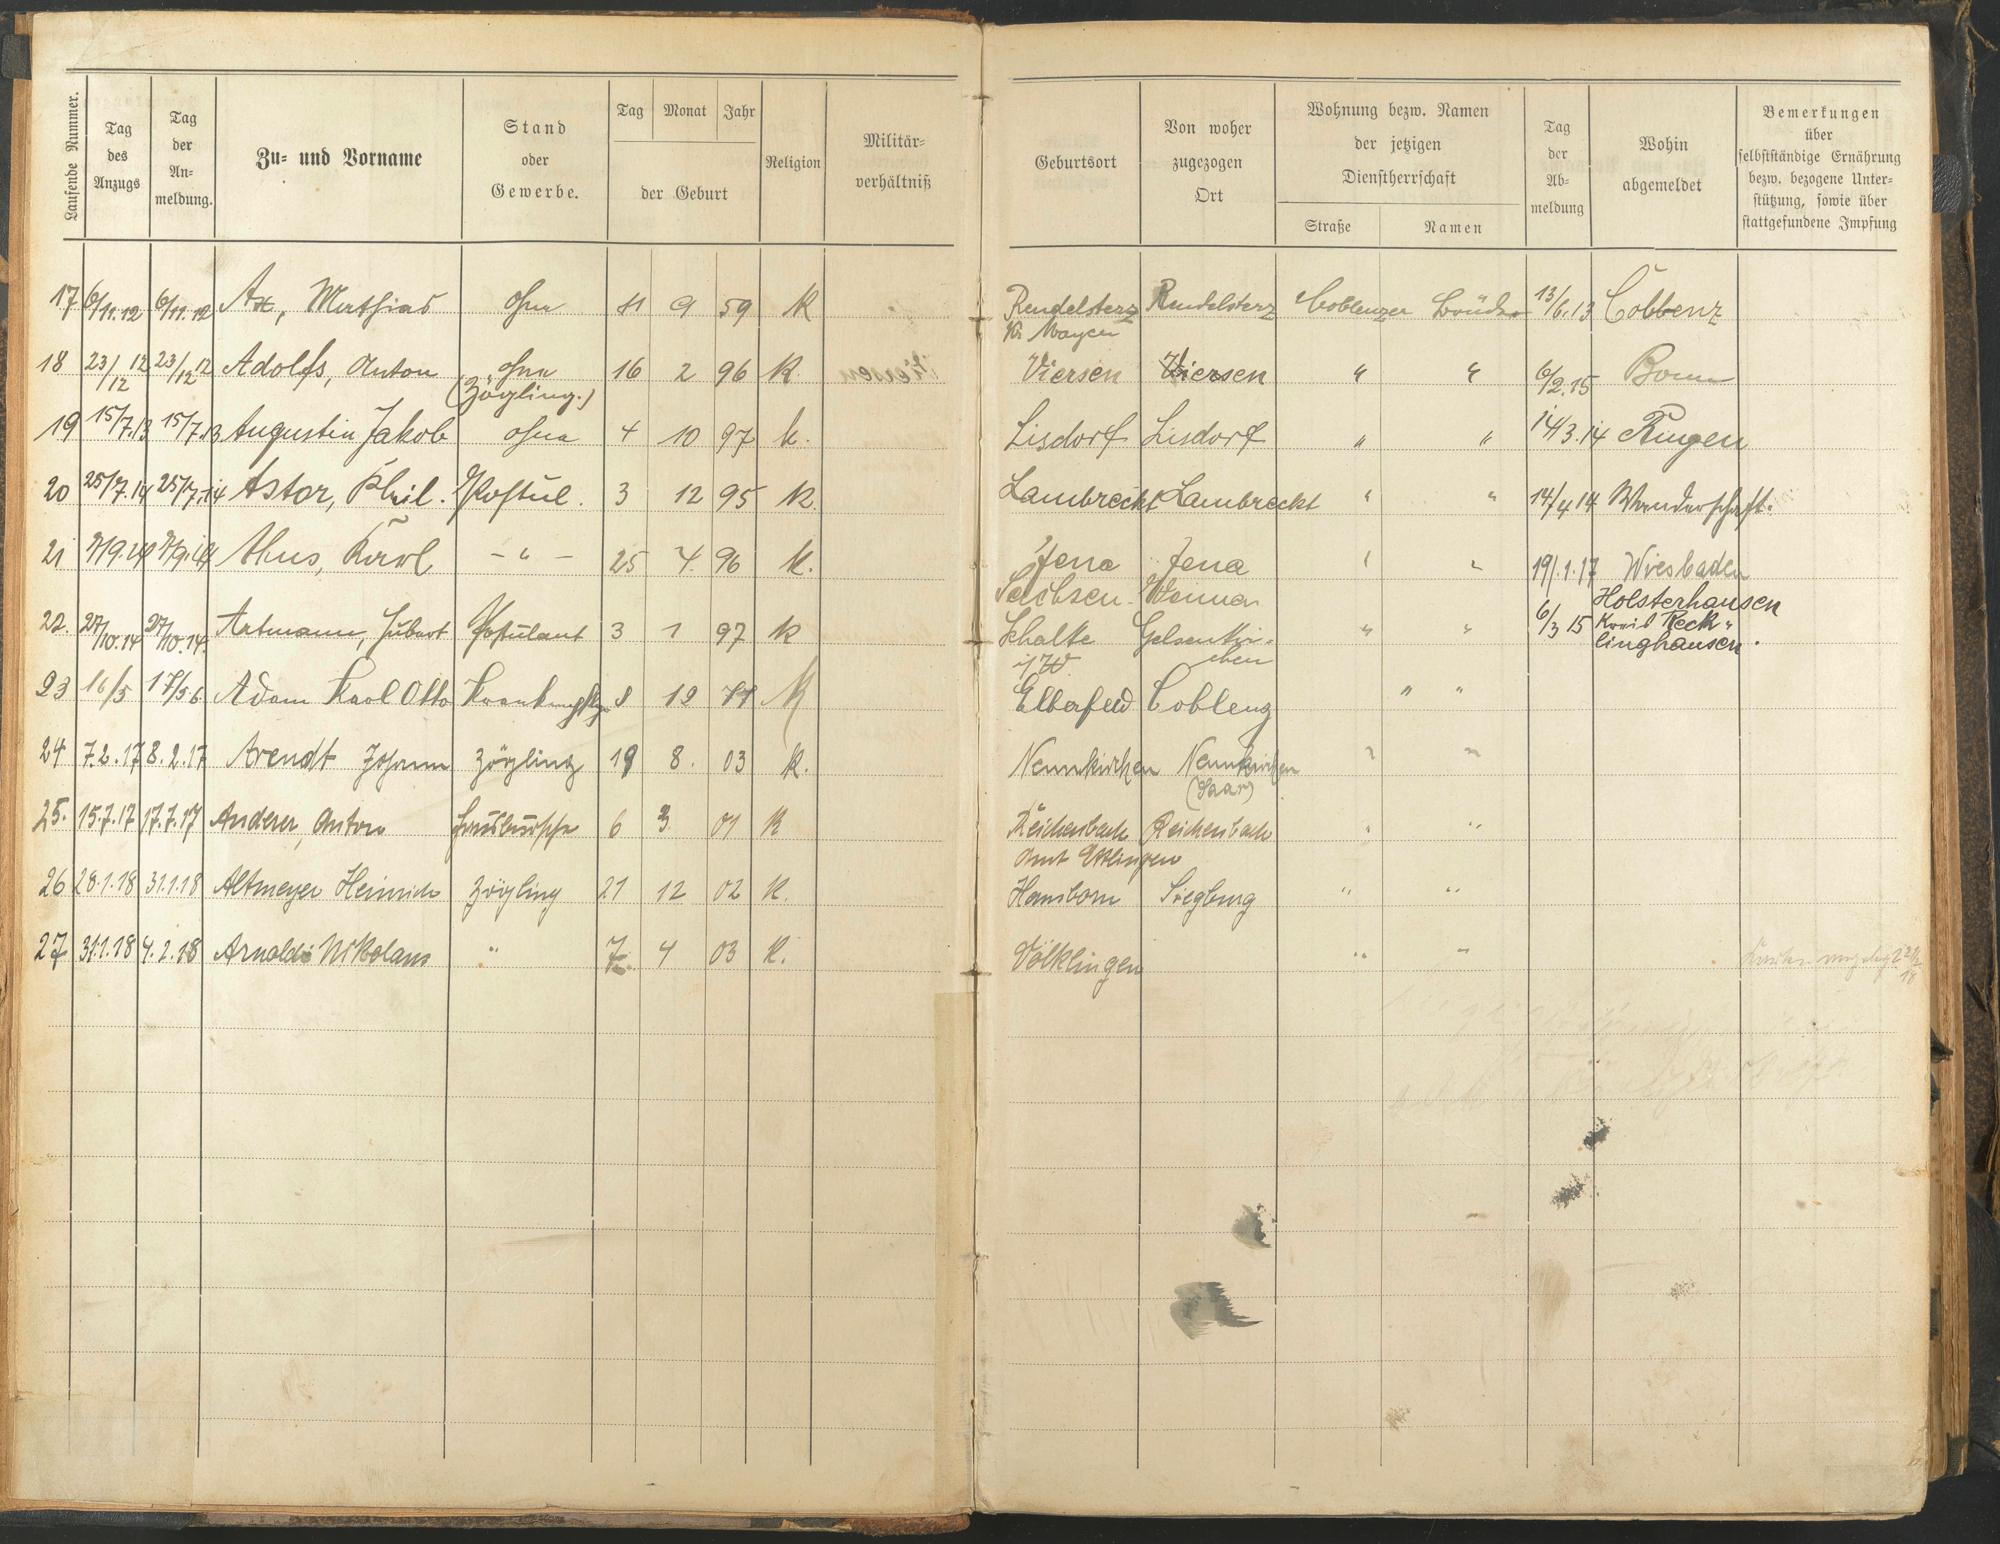 Laufende Nummer.
Tag des Anzugs
Tag der An-meldung.
Zu= und Vorname
Stand oder Gewerbe.
Tag Monat Jahr
der Geburt
Religion
Militär-verhältniß
Geburtsort
Von woher zugezogen Ort
Wohnung bezw. Namen der jetzigen Dienstherrschaft
Straße Namen
Tag der Ab-meldung
Wohin abgemeldet
Bemerkungen über selbstständige Ernährung bezw. bezogene Unter-stützung, sowie über stattgefundene Impfung
17 6/11.12 6/11.12 Ax, Mathias ohne 11 9 59 K Rendelsterz Rendelsterz Coblenzer Brüder 13/6.13 Coblenz
Kr. Mayen
18 23/12 12 23/12 12 Adolfs, Anton ohne 16 2 96 K. Viersen Viersen " " 6/2.15 Bonn
(Zögling.)
19 15/7.13 15/7.13 Augustin Jakob ohne 4 10 97 k. Lisdorf Lisdorf " " 14/3.14 Ringen
20 25/7.14 25/7.14 Astor, Phil. Postul. 3 12 95 K. Lambrecht Lambrecht " " 14/4 14 Wanderschaft.
21 7/9.14 7/9.14 Karl - " - 25 4. 96 K. Jena Jena " " 19/.1.17 Wiesbaden
Sachsen-Weimar
22. 27/10.14 27/10.14. Artmann, Hubert Postulant 3 1 97 K Schalke Gelsenkir- " " 6/3 15 Holsterhausen
i/W. chen Kreis Reck-
linghausen.
23 16/5 17/5 6. Adam Karl Otto 8 12 K Elberfeld Coblenz " "
24 7.2.17 8.2.17 Arendt Johann Zögling 19 8. 03 K. Neunkirchen Neunkirchen " "
(Saar)
25. 15.7.17 17.7.17 Anderer, Anton Hausbursche 6 3 01 K Reichenbach Reichenbach " "
Amt Ettlingen
26 28.1.18 31.1.18 Altmeyer Heinrich Zögling 21 12 02 K. Hamborn Siegburg " "
27 31.1.18 4.2.18 Arnoldi Nikolaus " 7. 4 03 K. Völklingen " "